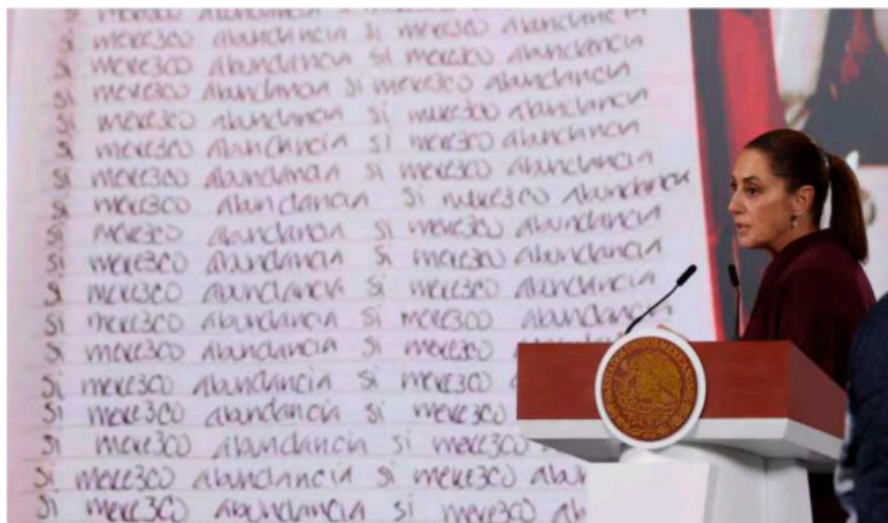 si mere3co abundancia si mere3co abundancia
si mere3co abundancia si mere3co abundancia
si mere3co abundancia si mere3co abundancia
si mere3co abundancia si mere3co abundancia
si mere3co abundancia si mere3co abundancia
si mere3co abundancia si mere3co abundancia
si mere3co abundancia si mere3co abundancia
si mere3co abundancia si mere3co abundancia
si mere3co abundancia si mere3co abundancia
si mere3co abundancia si mere3co abundancia
si mere3co abundancia si mere3co abundancia
si mere3co abundancia si mere3co abundancia
si mere3co abundancia si mere3co
si mere3co abundancia si mere3co
si mere3co abundancia si mere3co
si mere3co abundancia si mere3co abun
si mere3co abundancia si mere3co ab
ESTADOS UNIDOS MEXICANOS